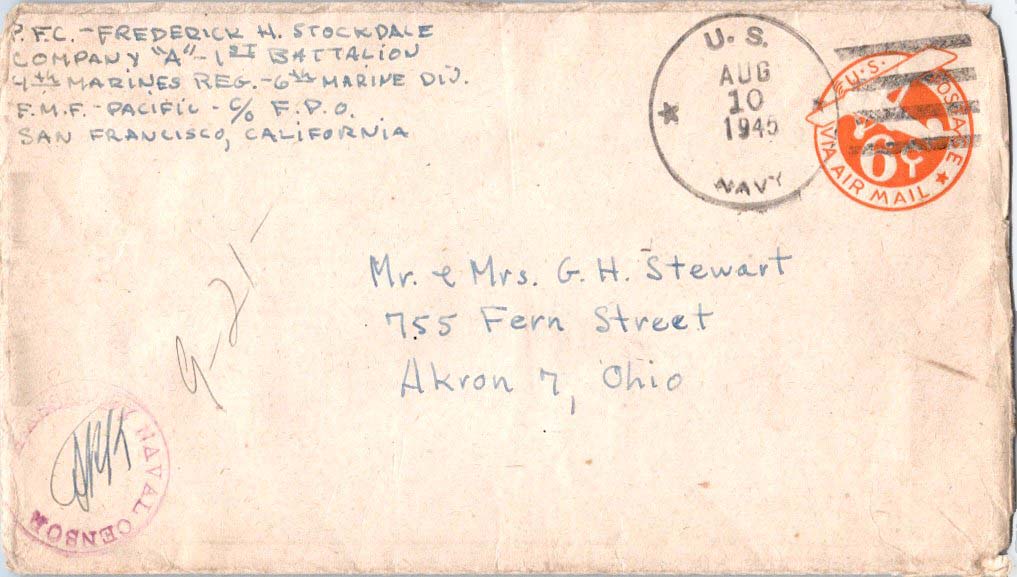 P.F.C. - FREDERICK H. STOCKDALE
COMPANY "A" - 1ST BATTALION
4th MARINES REG. - 6th MARINE DIV.
F.M.F. - PACIFIC - C/O F.P.O.
SAN FRANCISCO, CALIFORNIA
U.S.
AUG
10
1945
NAVY
U.S. POSTAGE
6¢
VIA AIR MAIL
9-21-
Mr. & Mrs. G. H. Stewart
755 Fern Street
Akron 7, Ohio
NAVAL CENSOR